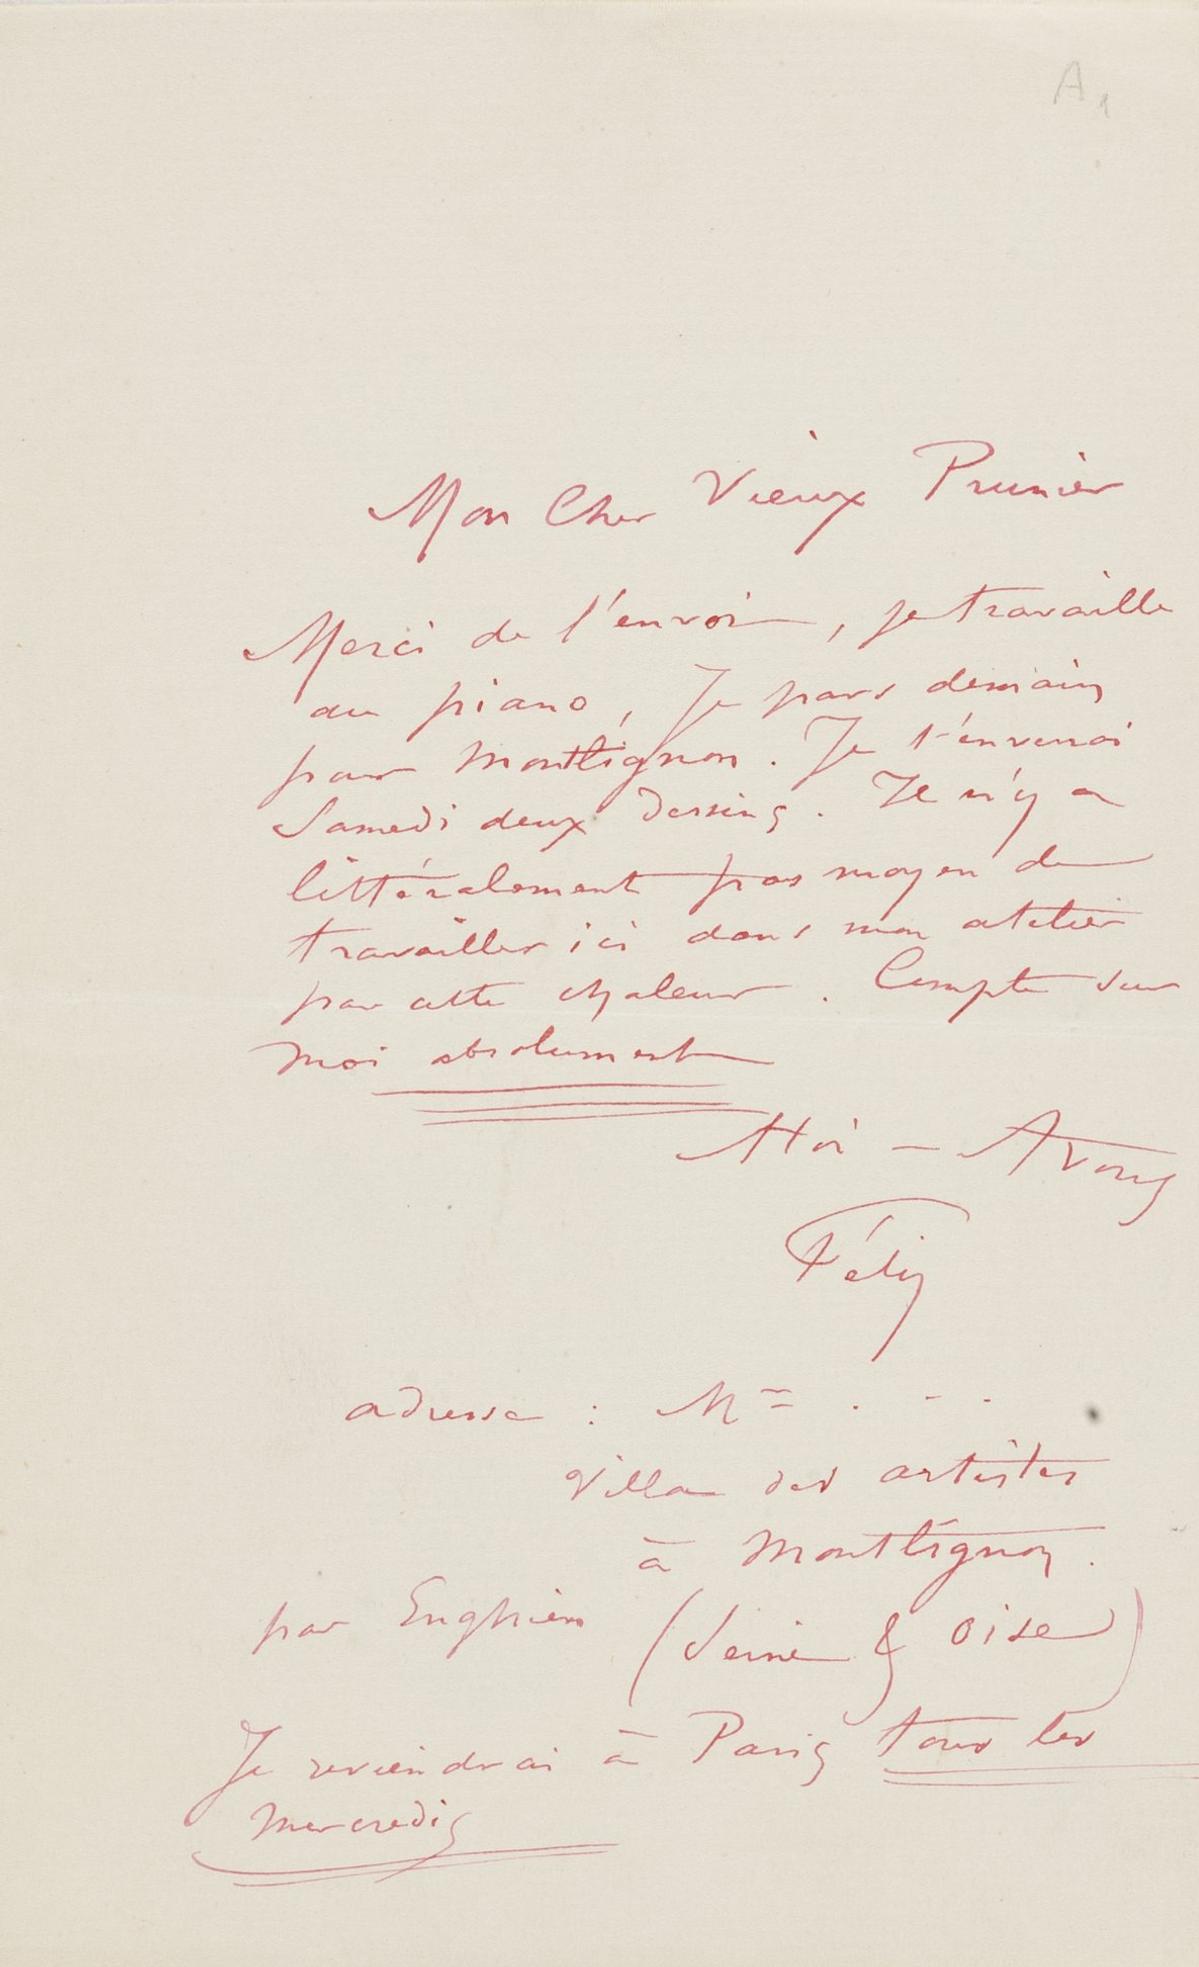 A1
Mon Cher Vieux Prunier
Merci de l'envoi, je travaille
au piano, Je pars demain
pour Montlignon. Je t'enverrai
Samedi deux dessins. Il n'y a
littéralement pas moyen de
travailler ici dans mon atelier
par cette chaleur. Compte sur
moi absolument
A toi —
Féli
adresse : Me . - -
Villa des artistes
à Montlignon.
par Enghien (Seine & Oise)
Je reviendrai à Paris tous les
mercredis